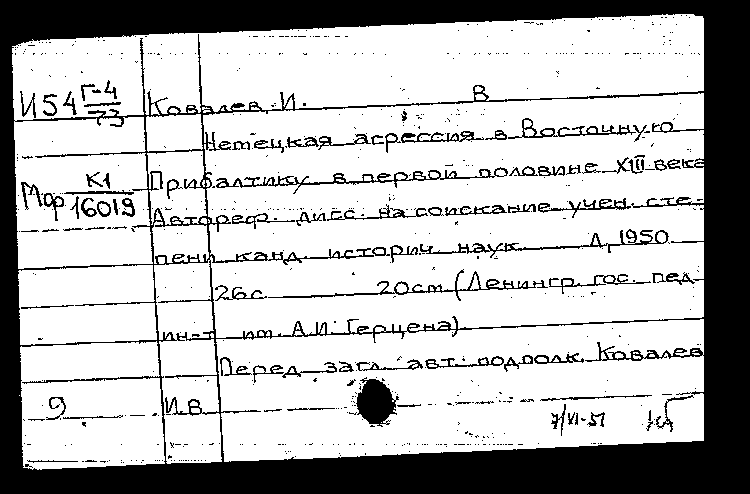 И54 Г-4/73 Ковалев, И. В
Немецкая агрессия в Восточную
Мор К1/16019 Прибалтику в первой половине XIII века
Автореф. дисс. на соискание учен. сте-
пени канд. историч. наук. Л, 1950.
26с. 20см (Ленингр. гос. пед.
ин-т им. А.И. Герцена).
Перед загл. авт.: подполк. Ковалев
9 И.В.
7/VI-51